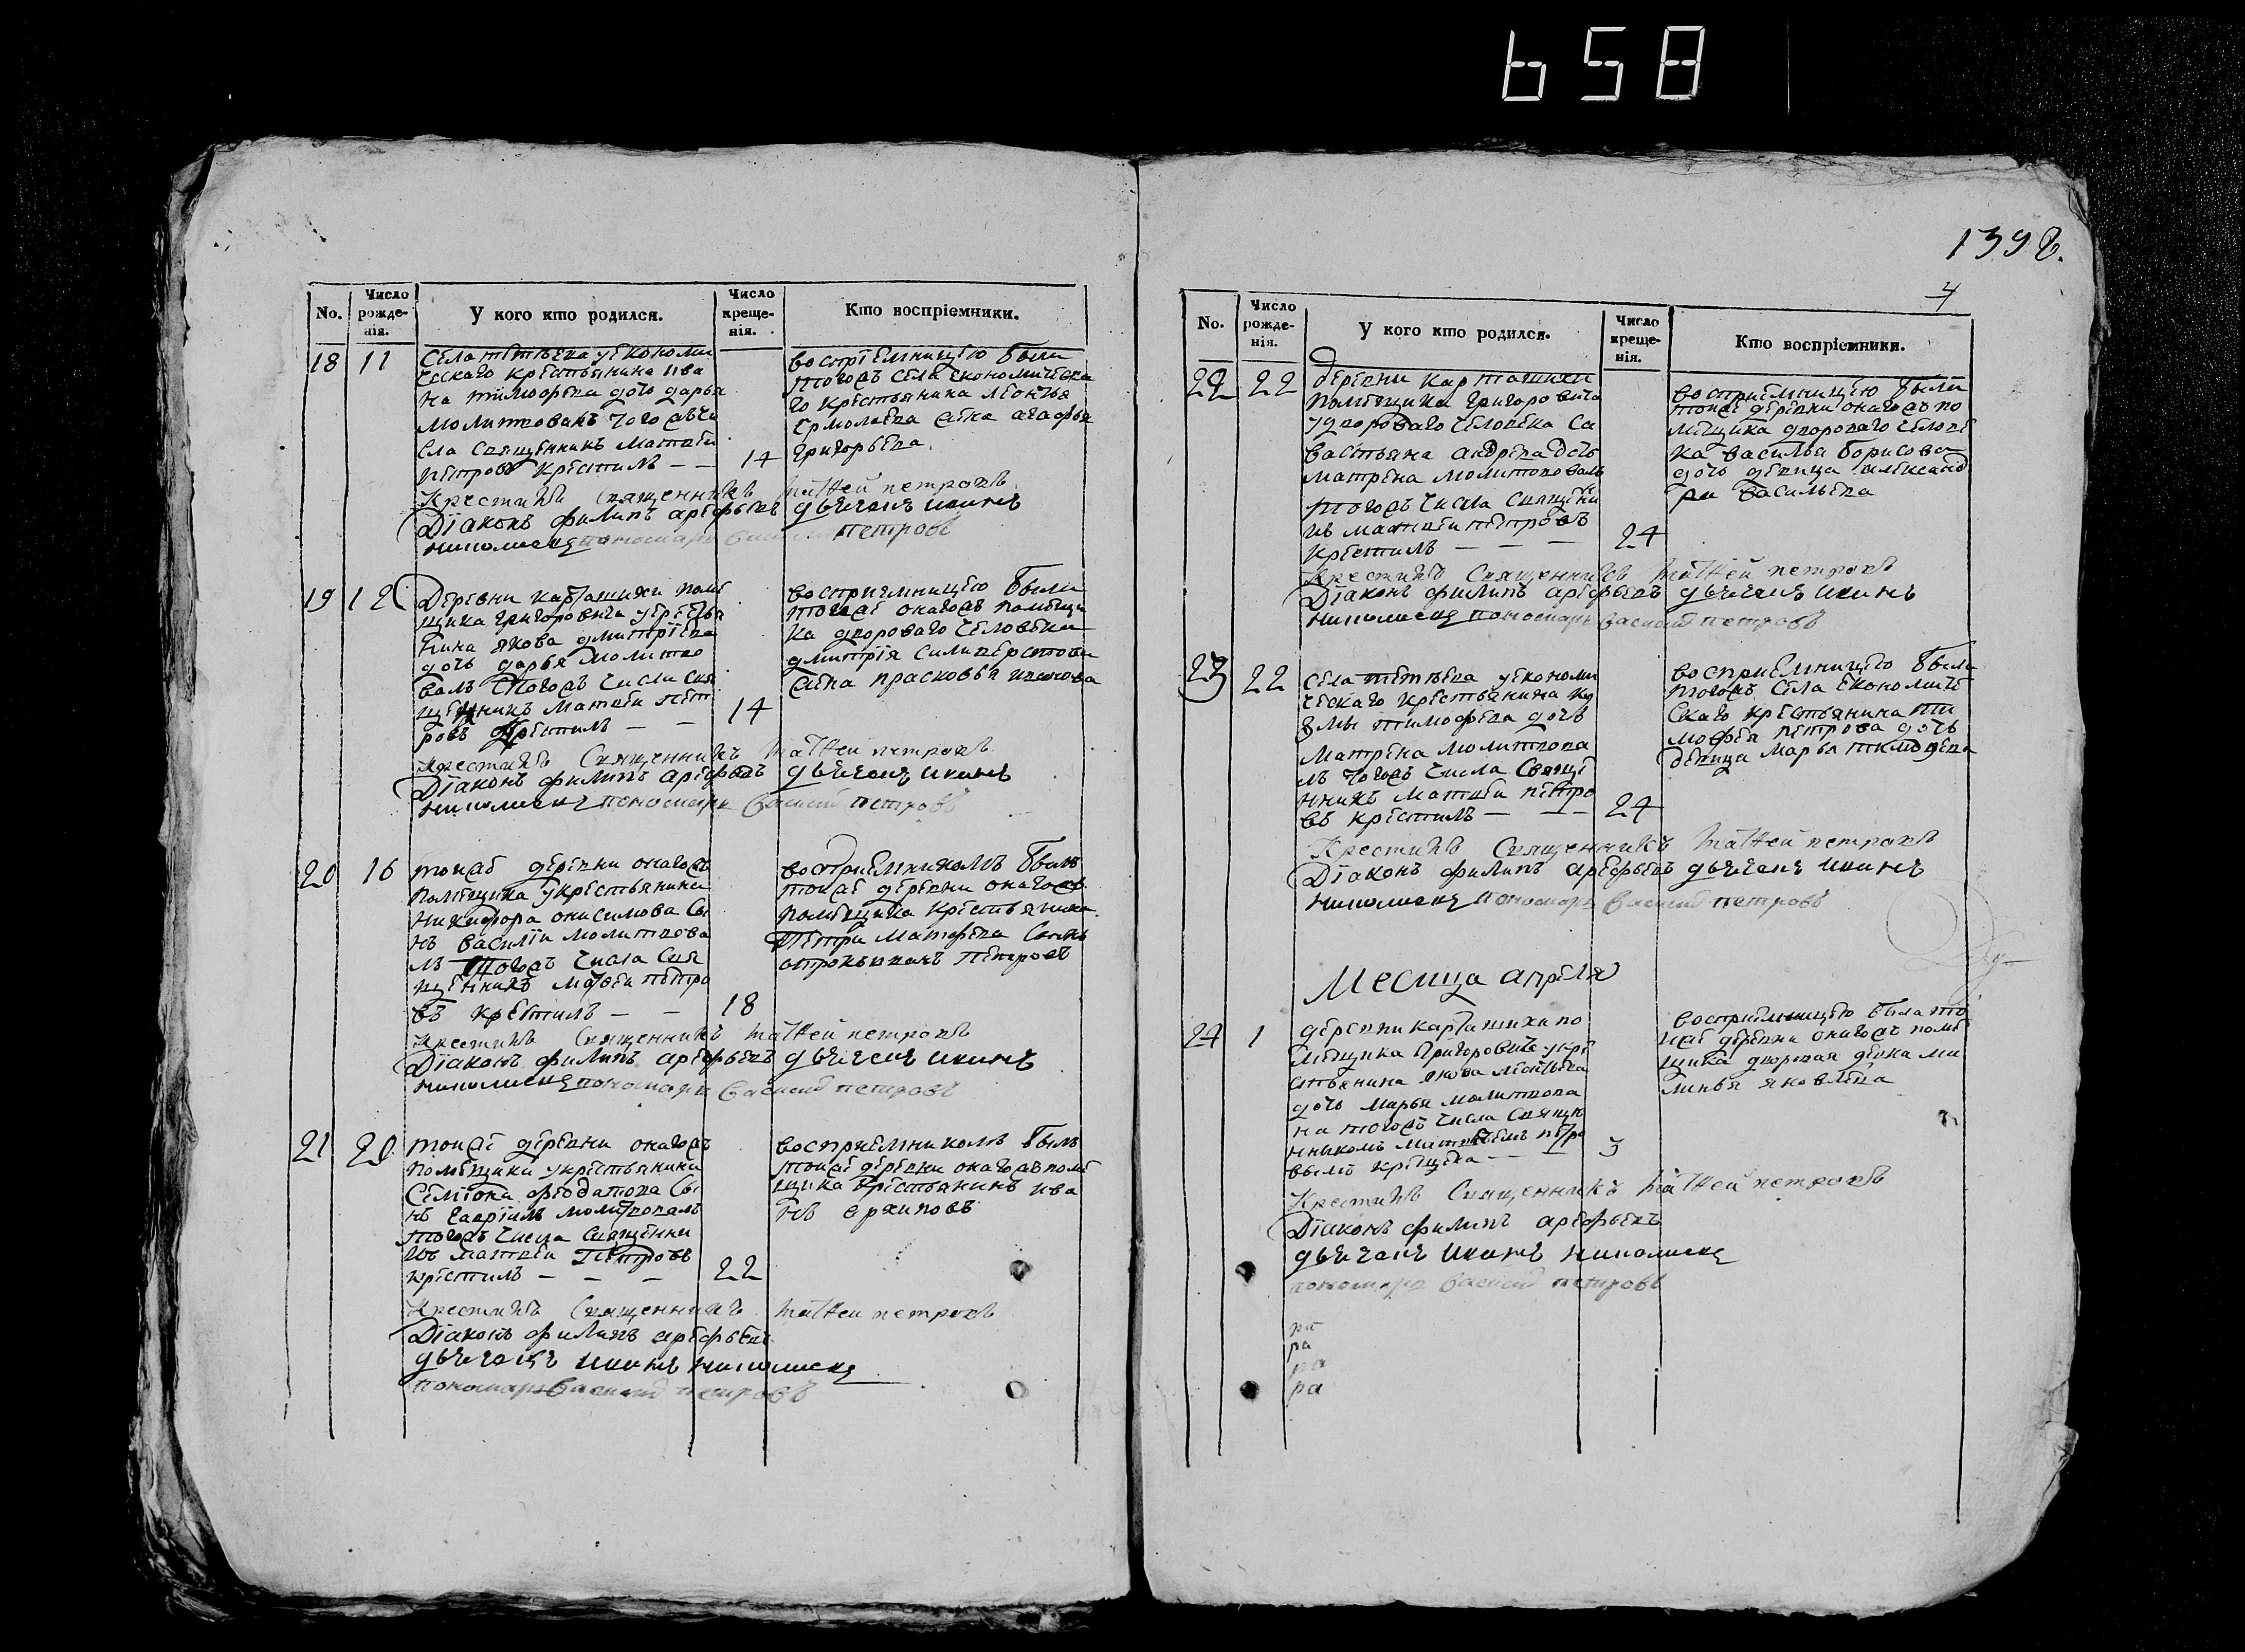 658
1398.
4
No.
Число рожде-нія.
У кого кто родился.
Число креще-нія.
Кто воспріемники.
18 11
Села тетнева у економи
ческаго крестьянина ива
на тимофеева дочь дарья
молитвовалъ тогожъ чи
сла священникъ матвеи
петровъ крестилъ — — 14
воспріемницею была
тогожъ села економическа
го крестьянина леонтья
ермолаева жена агафья
григорьева.
Крестилъ священникъ матѳей петровъ
Діаконъ филипъ арефьевъ дьячекъ иванъ
пономарь василей петровъ
19 12
Деревни карташихи поме
щика григоровича у крестья
нина якова дмитріева
дочь дарья молитво
валъ тогожъ числа свя
щенникъ матвеи пет
ровъ крестилъ — — 14
восприемницею была
тояже онагожъ помещи
ка двороваго человека
дмитрія
жена прасковья иванова
Крестилъ священникъ матѳей петровъ
Діаконъ филипъ арефьевъ дьячекъ иванъ
пономарь василей петровъ
20 16
тояже деревни онагожъ
помещика у крестьянина
никифора онисимова сы
нъ василіи молитвова
лъ тогожъ числа свя
щенникъ матвеи петро
въ крестилъ — — 18
восприемникомъ былъ
тояже деревни онагожъ
помещика крестьянина
петра матфеева сынъ
отрокъ иванъ петровъ
Крестилъ священникъ матѳей петровъ
Діаконъ филипъ арефьевъ дьячекъ иванъ
пономарь василей петровъ
21 20
тояже деревни онагожъ
помещика у крестьянина
семіона федотова сы
нъ гавріилъ молитвовалъ
тогожъ числа священни
къ матвеи петровъ
крестилъ — — — 22
восприемникомъ былъ
тояже деревни онагожъ поме
щика крестьянинъ ива
нъ архиповъ
Крестилъ священникъ матѳей петровъ
Діаконъ филипъ арефьевъ
дьячекъ иванъ
пономарь василей петровъ
No.
Число рожде-нія.
У кого кто родился.
Число креще-нія.
Кто воспріемники.
22 22
деревни карташихи
помещика григоровича
у двороваго человека са
вастьяна андреева дочь
матрена молитвовалъ
тогожъ числа священни
къ матвеи петровъ
крестилъ — — — 24
восприемницею была
тояже деревни онагожъ по
мещика двороваго челове
ка василья борисова
дочь девица александ
ра васильева
Крестилъ священникъ матѳей петровъ
Діаконъ филипъ арефьевъ дьячекъ иванъ
пономарь василей петровъ
23 22
села тетнева у економи
ческаго крестьянина ку
змы тимофеева дочь
матрена молитвова
лъ тогожъ числа свяще
нникъ матвеи петро
въ крестилъ — — — 24
восприемницею была
тогожъ села економиче
скаго крестьянина ти
мофея петрова дочь
девица марья тимофеева
Крестилъ священникъ матѳей петровъ
Діаконъ филипъ арефьевъ дьячекъ иванъ
пономарь василей петровъ
Месяца апреля
24 1
деревни карташихи по
мещика григоровича у кре
стьянина якова
дочь марья молитвова
на тогожъ числа свяще
нникомъ матвеемъ петро
вымъ крещена — — 3
восприемницею была то
яже деревни онагожъ поме
щика дворовая девка ма
ланья яковлева
Крестилъ священникъ матѳей петровъ
Діаконъ филипъ арефьевъ
дьячекъ иванъ
пономарь василей петровъ
ра
ра
ра
ра